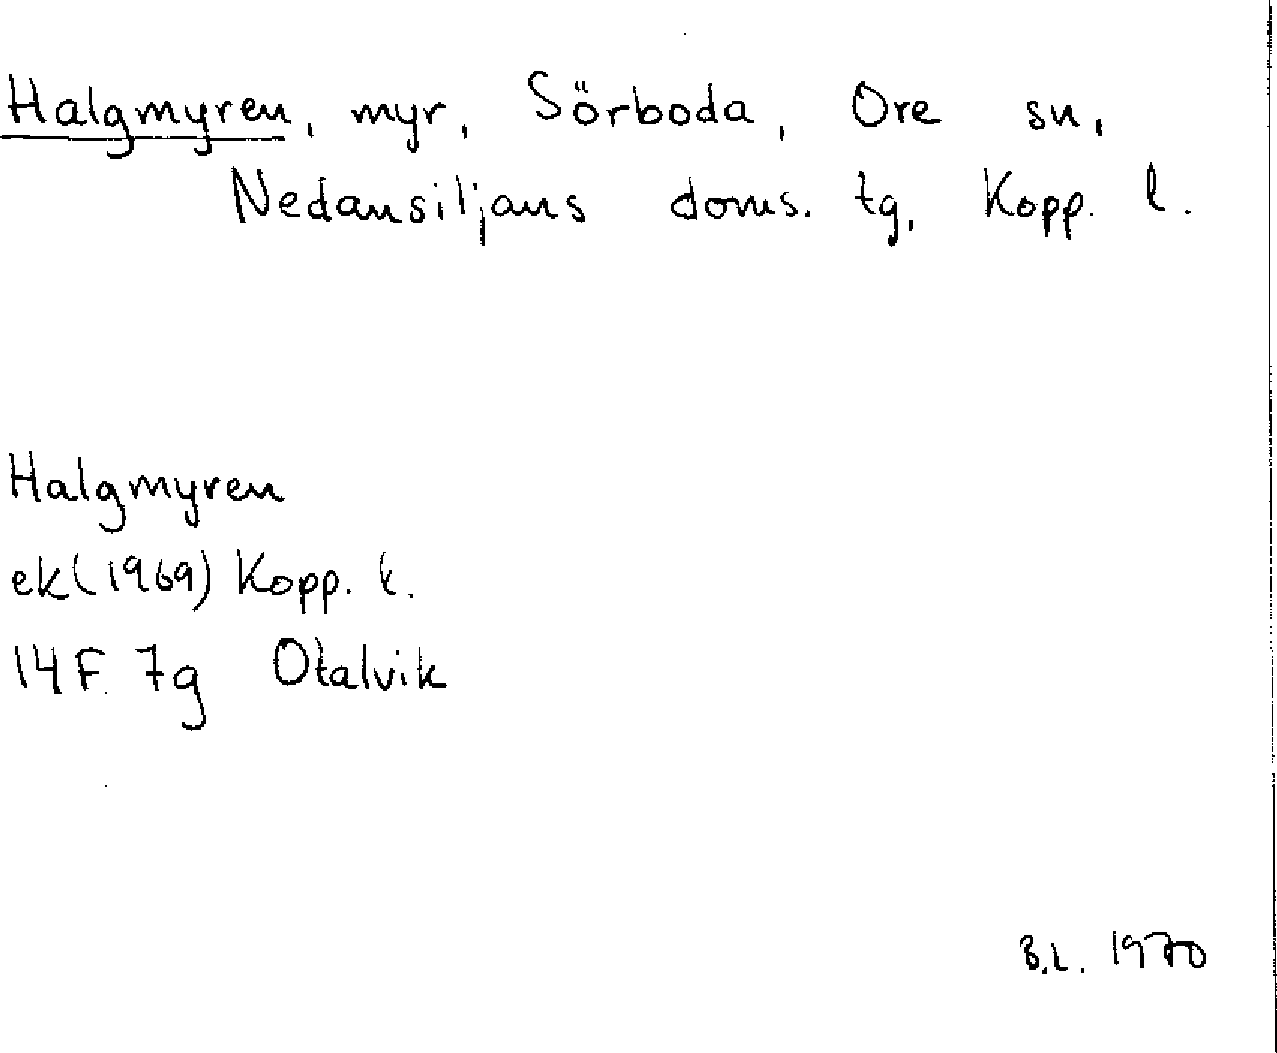 Halgmyren, myr, Sörboda, Ore sn,
Nedansiljans doms. tg, Kopp. l.
Halgmyren
ek (1969) Kopp. l.
14 F. 7g Otalvik
B.L. 1970